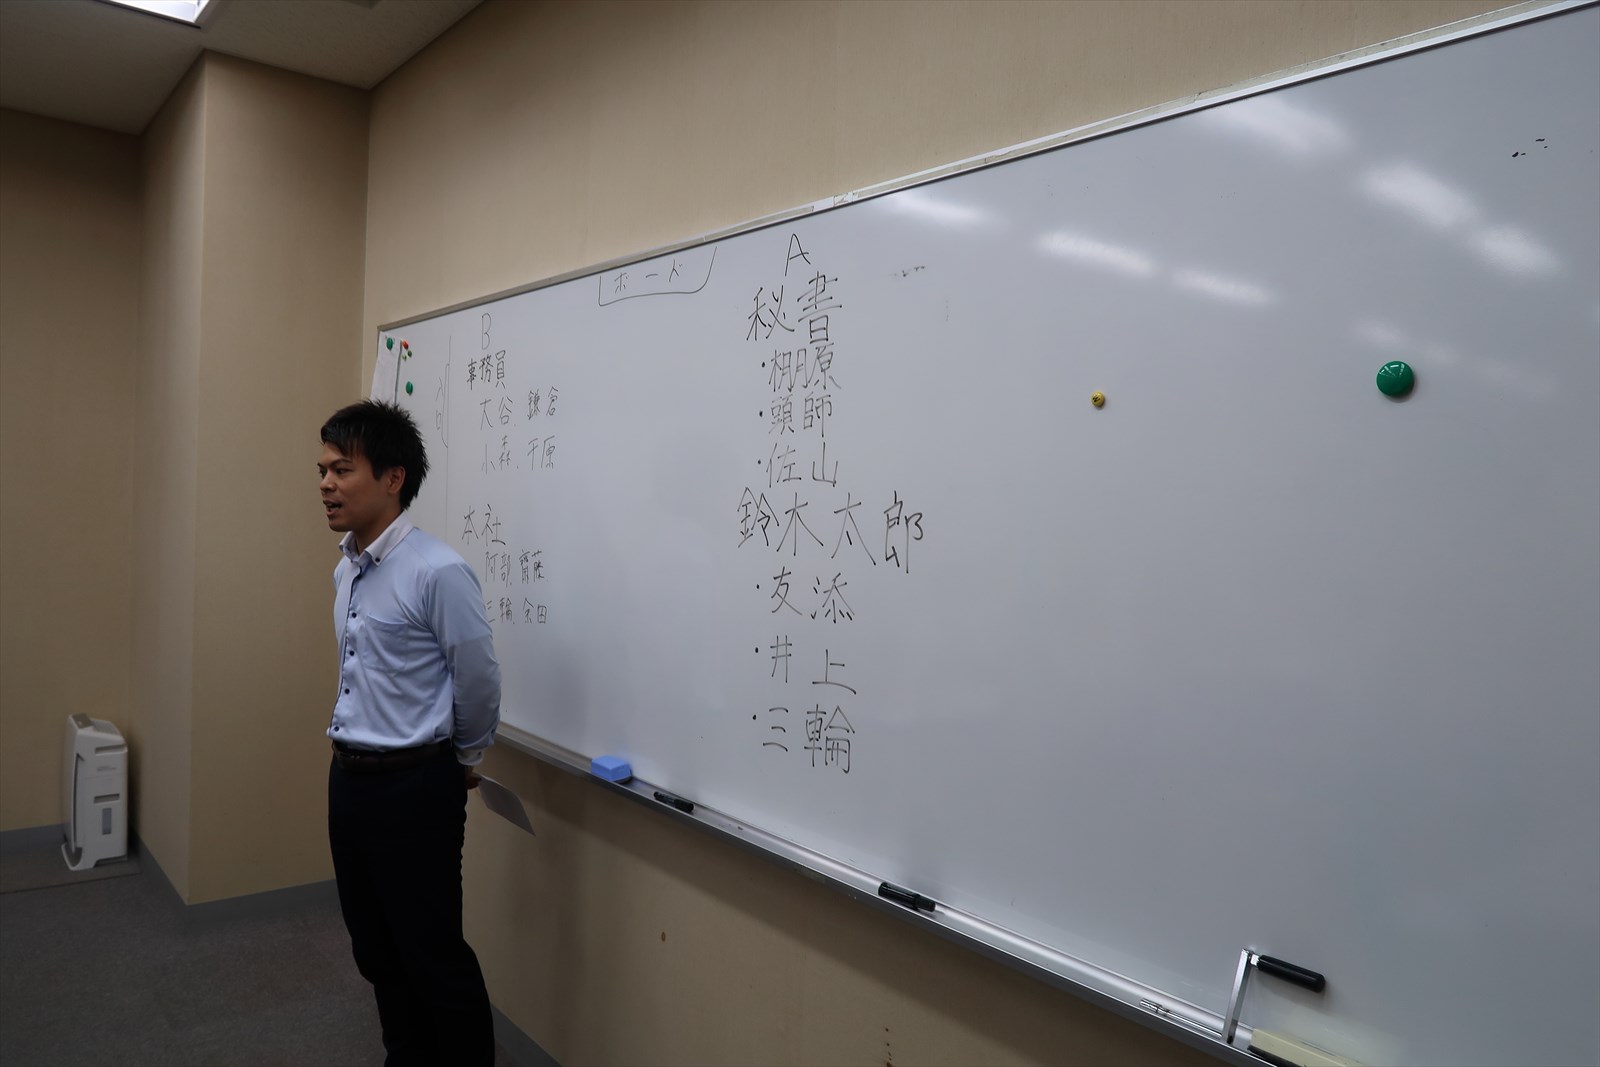 ボード
B
事務員
大谷、鎌倉
小森、干原
本社
阿部、齋藤
三輪、余田
A
秘書
・棚原
・頭師
・佐山
鈴木太郎
・友添
・井上
・三輪